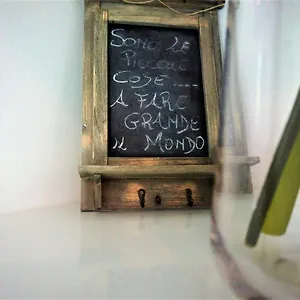 SONO LE
PICCOLE
COSE ....
A FARE
GRANDE
IL MONDO